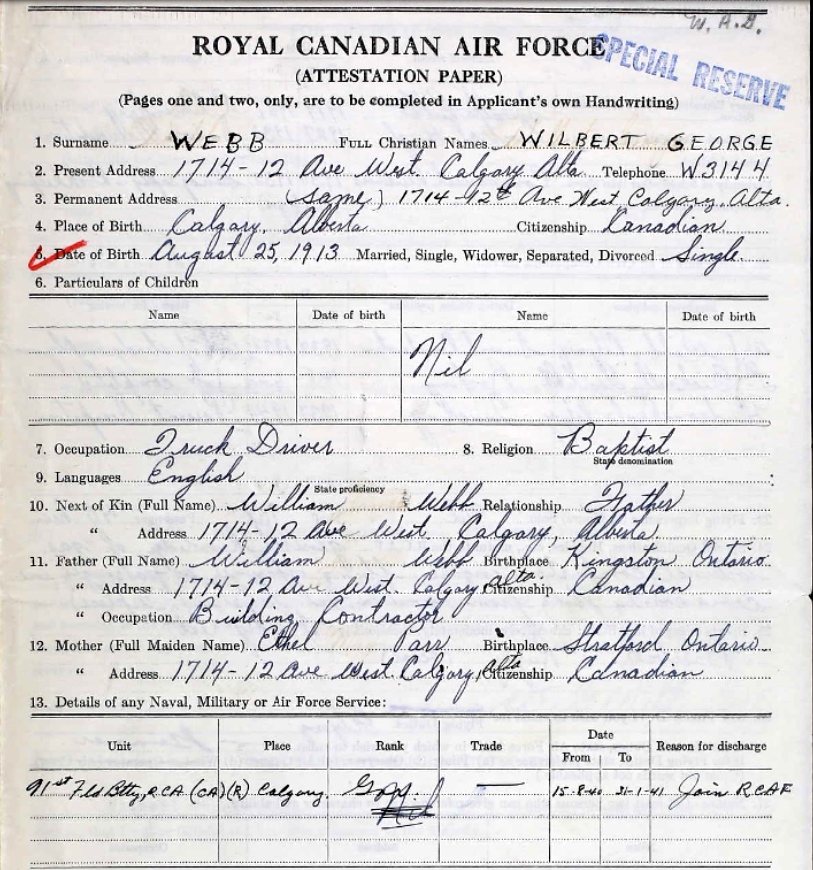 W.A.G.
ROYAL CANADIAN AIR FORCE
SPECIAL RESERVE
(ATTESTATION PAPER)
(Pages one and two, only, are to be completed in Applicant's own Handwriting)
1. Surname WEBB FULL Christian Names WILBERT GEORGE
2. Present Address 1714-12 Ave West. Calgary Alta Telephone W3144
3. Permanent Address (same) 1714-12th Ave West, Calgary, Alta.
4. Place of Birth Calgary, Alberta Citizenship Canadian
5. Date of Birth August 25, 1913 Married, Single, Widower, Separated, Divorced Single.
6. Particulars of Children
Name Date of birth Name Date of birth
Nil
7. Occupation Truck Driver 8. Religion Baptist
State denomination
9. Languages English
State proficiency
10. Next of Kin (Full Name) William Webb Relationship Father
" Address 1714-12 Ave West. Calgary, Alberta.
11. Father (Full Name) William Webb Birthplace Kingston Ontario
" Address 1714-12 Ave West. Calgary Alta. Citizenship Canadian
" Occupation Building Contractor
12. Mother (Full Maiden Name) Ethel Parr Birthplace Stratford, Ontario
" Address 1714-12 Ave West. Calgary, Alta Citizenship Canadian
13. Details of any Naval, Military or Air Force Service:
Unit Place Rank Trade Date From To Reason for discharge
91st Fld Btty, RCA (CA)(R) Calgary. — 15-8-40 31-1-41 Join RCAF